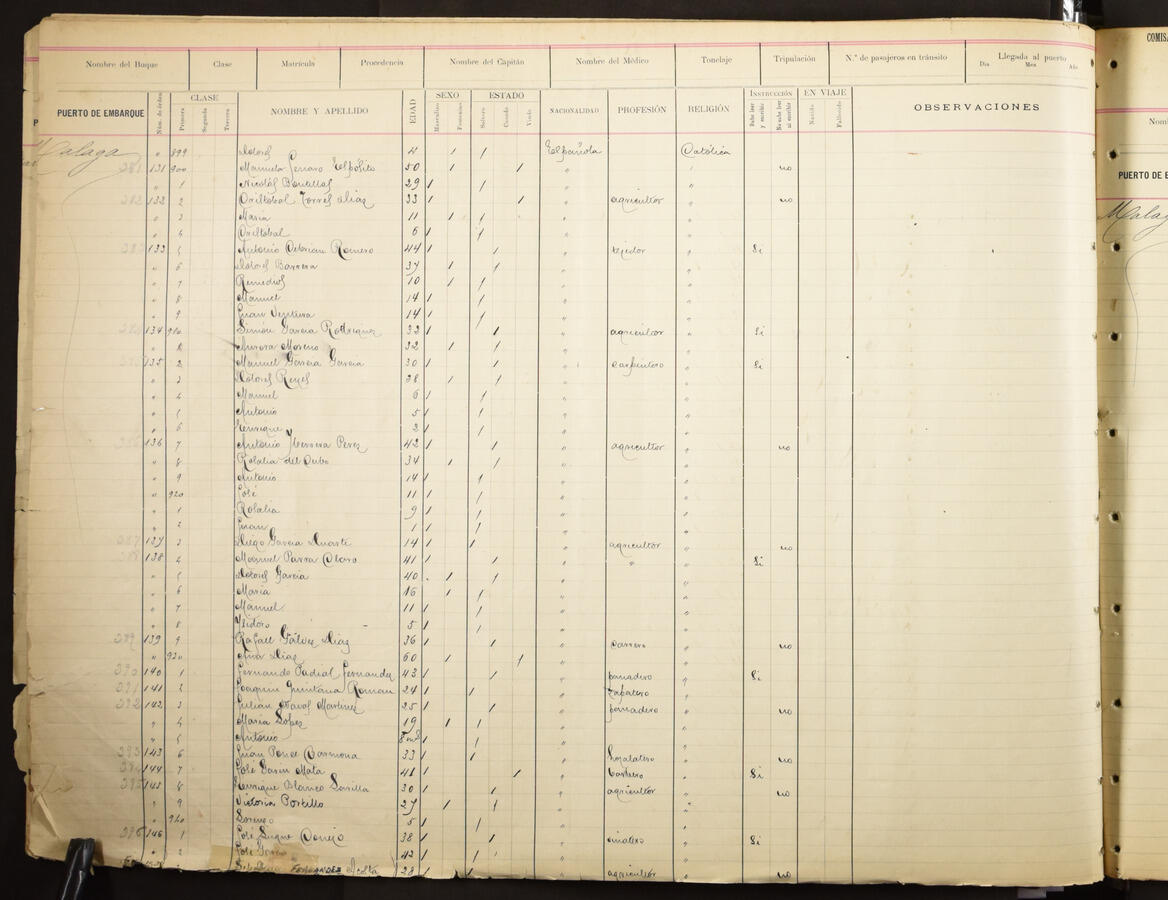 Nombre del Buque Clase Matrícula Procedencia Nombre del Capitán Nombre del Médico Tonelaje Tripulación N.º de pasajeros en tránsito Llegada al puerto
Dia Mes Año
COMISA
PUERTO DE EMBARQUE Núm. de órden CLASE Primera Segunda Tercera NOMBRE Y APELLIDO EDAD SEXO Masculino Femenino ESTADO Soltero Casado Viudo NACIONALIDAD PROFESIÓN RELIGIÓN INSTRUCCIÓN Sabe leer y escribir No sabe leer ni escribir EN VIAJE Nacido Fallecido OBSERVACIONES
Malaga " 899 Dolores 4 / / Española Católica
281 131 900 Manuela Genaro Espósito 50 / / " no
" 1 Nicolás Bonillas 29 / / " "
282 132 2 Cristobal Torres Diaz 33 / / " agricultor " no
" 3 Maria 11 / / " "
" 4 Cristobal 6 / / " "
133 5 Antonio Romero 44 / / " tejedor " Si
" 6 Dolores Barrera 37 / / " "
" 7 Remedios 10 / / " "
" 8 Manuel 14 / / " "
" 9 Juan Ventura 14 / / " "
134 910 Simón Garcia Rodriguez 32 / / " agricultor " Si
" Aurora Moreno 32 / / " "
135 2 Manuel Garcia Garcia 30 / / " carpintero " Si
" 3 Dolores Reyes 28 / / " "
" 4 Manuel 6 / / " "
" 5 Antonio 5 / / " "
" 6 Enrique 2 / / " "
136 7 Antonio Herrera Perez 42 / / " agricultor " no
" 8 Rosalia del Cubo 34 / / " "
" 9 Antonio 14 / / " "
" 920 José 11 / / " "
" 1 Rosalia 9 / / " "
" 2 Juan 1 / / " "
287 137 3 Diego Garcia Duarte 14 / / " agricultor " no
288 138 4 Manuel Parra Claro 41 / / " " " Si
" 5 Dolores Garcia 40 / / " "
" 6 Maria 16 / / " "
" 7 Manuel 11 / / " "
" 8 Isidoro 5 / / " "
289 139 9 Rafael Gálvez Diaz 36 / / " carrero " no
" 920 Ana Diaz 60 / / " "
290 140 1 Fernando Padial Fernandez 43 / / " panadero " Si
291 141 2 Joaquin Quintana Roman 24 / / " zapatero "
292 142 3 Julian Navas Martinez 25 / / " panadero " no
" 4 Maria Lopez 19 / / " "
" 5 Antonio 8 ms / / " "
293 143 6 Juan Ponce Carmona 33 / / " hojalatero " no
294 144 7 José Marin Mata 41 / / " barbero " Si
295 145 8 Enrique Blanco 30 / / " agricultor " no
" 9 Victoria Portillo 27 / / " "
" 940 Lorenzo 5 / / " "
296 146 1 José Luque Conejo 38 / / " " Si
" 2 José 42 / / " "
FERNANDEZ Acosta 28 / / " agricultor " no
Nom
PUERTO DE E
Malag